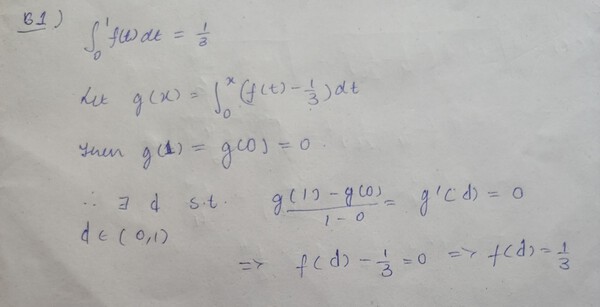 B1)
∫₀¹ f(t) dt = 1/3
Let g(x) = ∫₀ˣ (f(t) - 1/3) dt
Then g(1) = g(0) = 0.
∴ ∃ d s.t. (g(1) - g(0))/(1 - 0) = g'(d) = 0
d ∈ (0,1)
=> f(d) - 1/3 = 0 => f(d) = 1/3